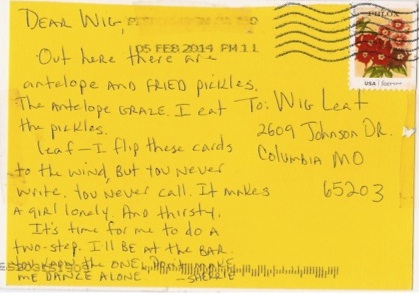 DEAR WIG,
05 FEB 2014 PM 11
Out here there are
antelope AND FRIED pickles.
The antelope GRAZE. I eat
the pickles.
Leaf—I flip these cards
to the wind, But you Never
write. You Never call. It makes
a girl lonely. And thirsty.
It's time for me to do a
two-step. I'll be at the BAR.
You know the ONE. Don't MAKE
ME DANCE ALONE. —SHERRIE
To: WIG Leaf
2609 Johnson DR.
Columbia MO
65203
USA